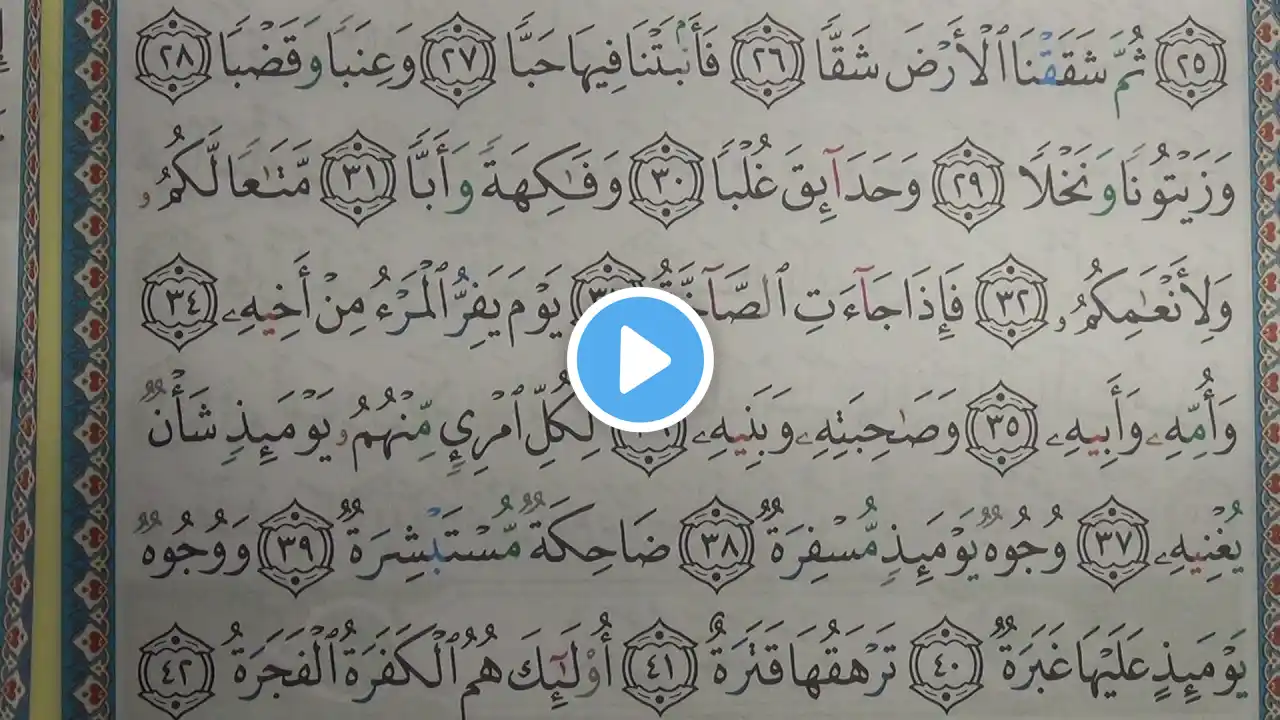 ٢٥ ثُمَّ شَقَقْنَا ٱلْأَرْضَ شَقًّا ٢٦ فَأَنۢبَتْنَا فِيهَا حَبًّا ٢٧ وَعِنَبًا وَقَضْبًا ٢٨
وَزَيْتُونًا وَنَخْلًا ٢٩ وَحَدَآئِقَ غُلْبًا ٣٠ وَفَـٰكِهَةً وَأَبًّا ٣١ مَّتَـٰعًا لَّكُمُۥ
وَلِأَنْعَـٰمِكُمُۥ ٣٢ فَإِذَا جَآءَتِ ٱلصَّآخَّةُ يَوْمَ يَفِرُّ ٱلْمَرْءُ مِنْ أَخِيهِۦ ٣٤
وَأُمِّهِۦ وَأَبِيهِۦ ٣٥ وَصَـٰحِبَتِهِۦ وَبَنِيهِۦ ٣٦ لِكُلِّ ٱمْرِئٍ مِّنْهُمُۥ يَوْمَئِذٍ شَأْنٌ
يُغْنِيهِۦ ٣٧ وُجُوهٌ يَوْمَئِذٍ مُّسْفِرَةٌ ٣٨ ضَاحِكَةٌ مُّسْتَبْشِرَةٌ ٣٩ وَوُجُوهٌ
يَوْمَئِذٍ عَلَيْهَا غَبَرَةٌ ٤٠ تَرْهَقُهَا قَتَرَةٌ ٤١ أُو۟لَـٰٓئِكَ هُمُ ٱلْكَفَرَةُ ٱلْفَجَرَةُ ٤٢